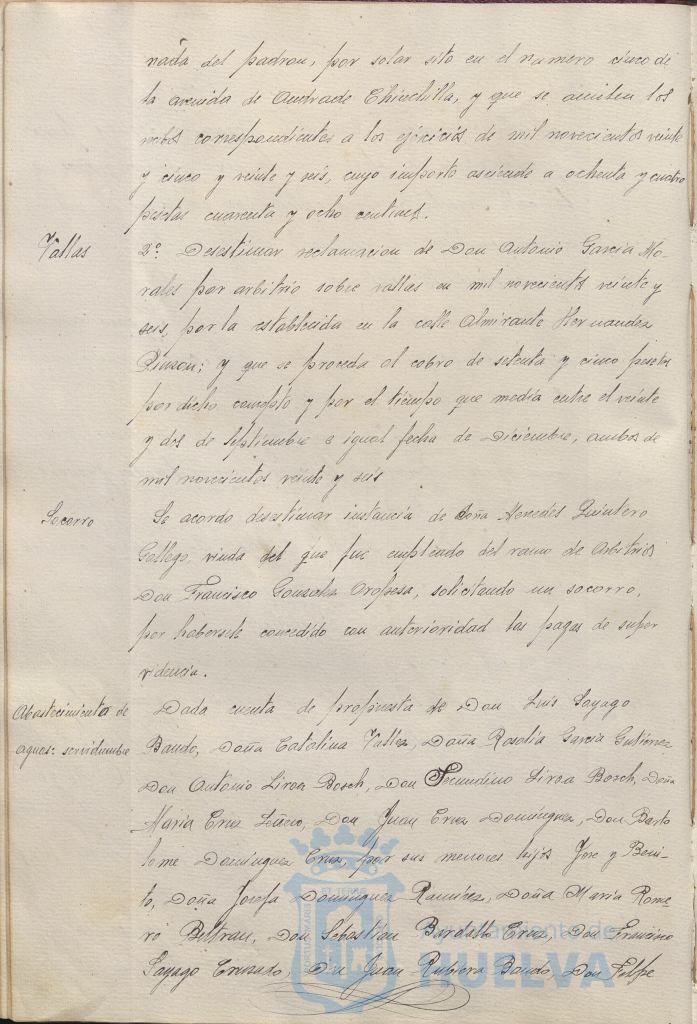 nada del padron, por solar sito en el numero cinco de
la avenida de Andrade Chinchilla, y que se anulen los
recibos correspondientes a los ejercicios de mil novecientos veinte
y cinco y veinte y seis, cuyo importe asciende a ochenta y cuatro
pesetas cuarenta y ocho centimos.
Vallas
2º. Desestimar reclamacion de Don Antonio Garcia Mo-
rales por arbitrio sobre vallas en mil novecientos veinte y
seis, por la establecida en la calle Almirante Hernandez
Pinzon; y que se proceda al cobro de setenta y cinco pesetas
por dicho concepto y por el tiempo que media entre el veinte
y dos de Septiembre e igual fecha de Diciembre, ambos de
mil novecientos veinte y seis
Socorro
Se acordo desestimar instancia de Doña Mercedes Quintero
Gallego, viuda del que fue empleado del ramo de Arbitrios
Don Francisco Gonzalez Oropesa, solicitando un socorro,
por habersele concedido con anterioridad las pagas de super
videncia.
Abastecimiento de
aguas: servidumbre
Dada cuenta de propuesta de Don Luis Sayago
Bando, Doña Catalina Vallez, Doña Rosalia Garcia Gutierrez
Don Antonio Liroa Bosch, Don Secundino Liroa Bosch, Doña
Maria Cruz, Don Juan Cruz Dominguez, Don Barto
lome Dominguez Cruz, por sus menores hijos Jose y Beni-
to, Doña Josefa Dominguez Ramirez, Doña Maria Rome-
ro Beltran, Don Sebastian Bardallo Cruz, Don Francisco
Sayago Cruzado, Don Juan Rubiera Bando, Don Felipe
Ayuntamiento de
HUELVA